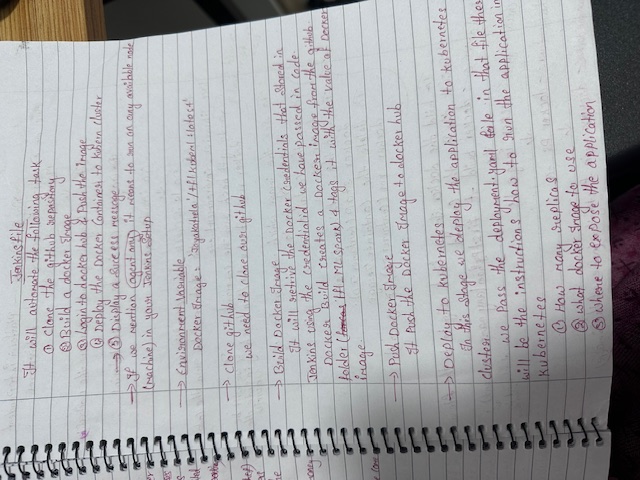 Jenkinsfile
It will automate the following task
① Clone the github repository
② Build a docker Image
③ Login to docker hub & Push the image
④ Deploy the Docker Container to kubern cluster
→ ⑤ Display a sucess message
→ If we mention (agent any) it means to run on any available node
(machine) in your Jenkins Setup
→ Environment Variable
Docker Image:
→ Clone github
we need to clone our github
→ Build Docker Image
It will retrive the Docker Credentials that stored in
Jenkins using the credentialid we have passed in code.
Docker Build creates a Docker image from the github
folder & tags it with the value of Docker
image
→ Push Docker Image
It Push the Docker Image to docker hub
→ Deploy to kubernetes
In this stage we deploy the application to kubernetes
cluster.
we pass the deployment.yaml file in that file ther
will be the instructions how to run the application in
kubernetes
① How many replicas
② what docker image to use
③ where to expose the application